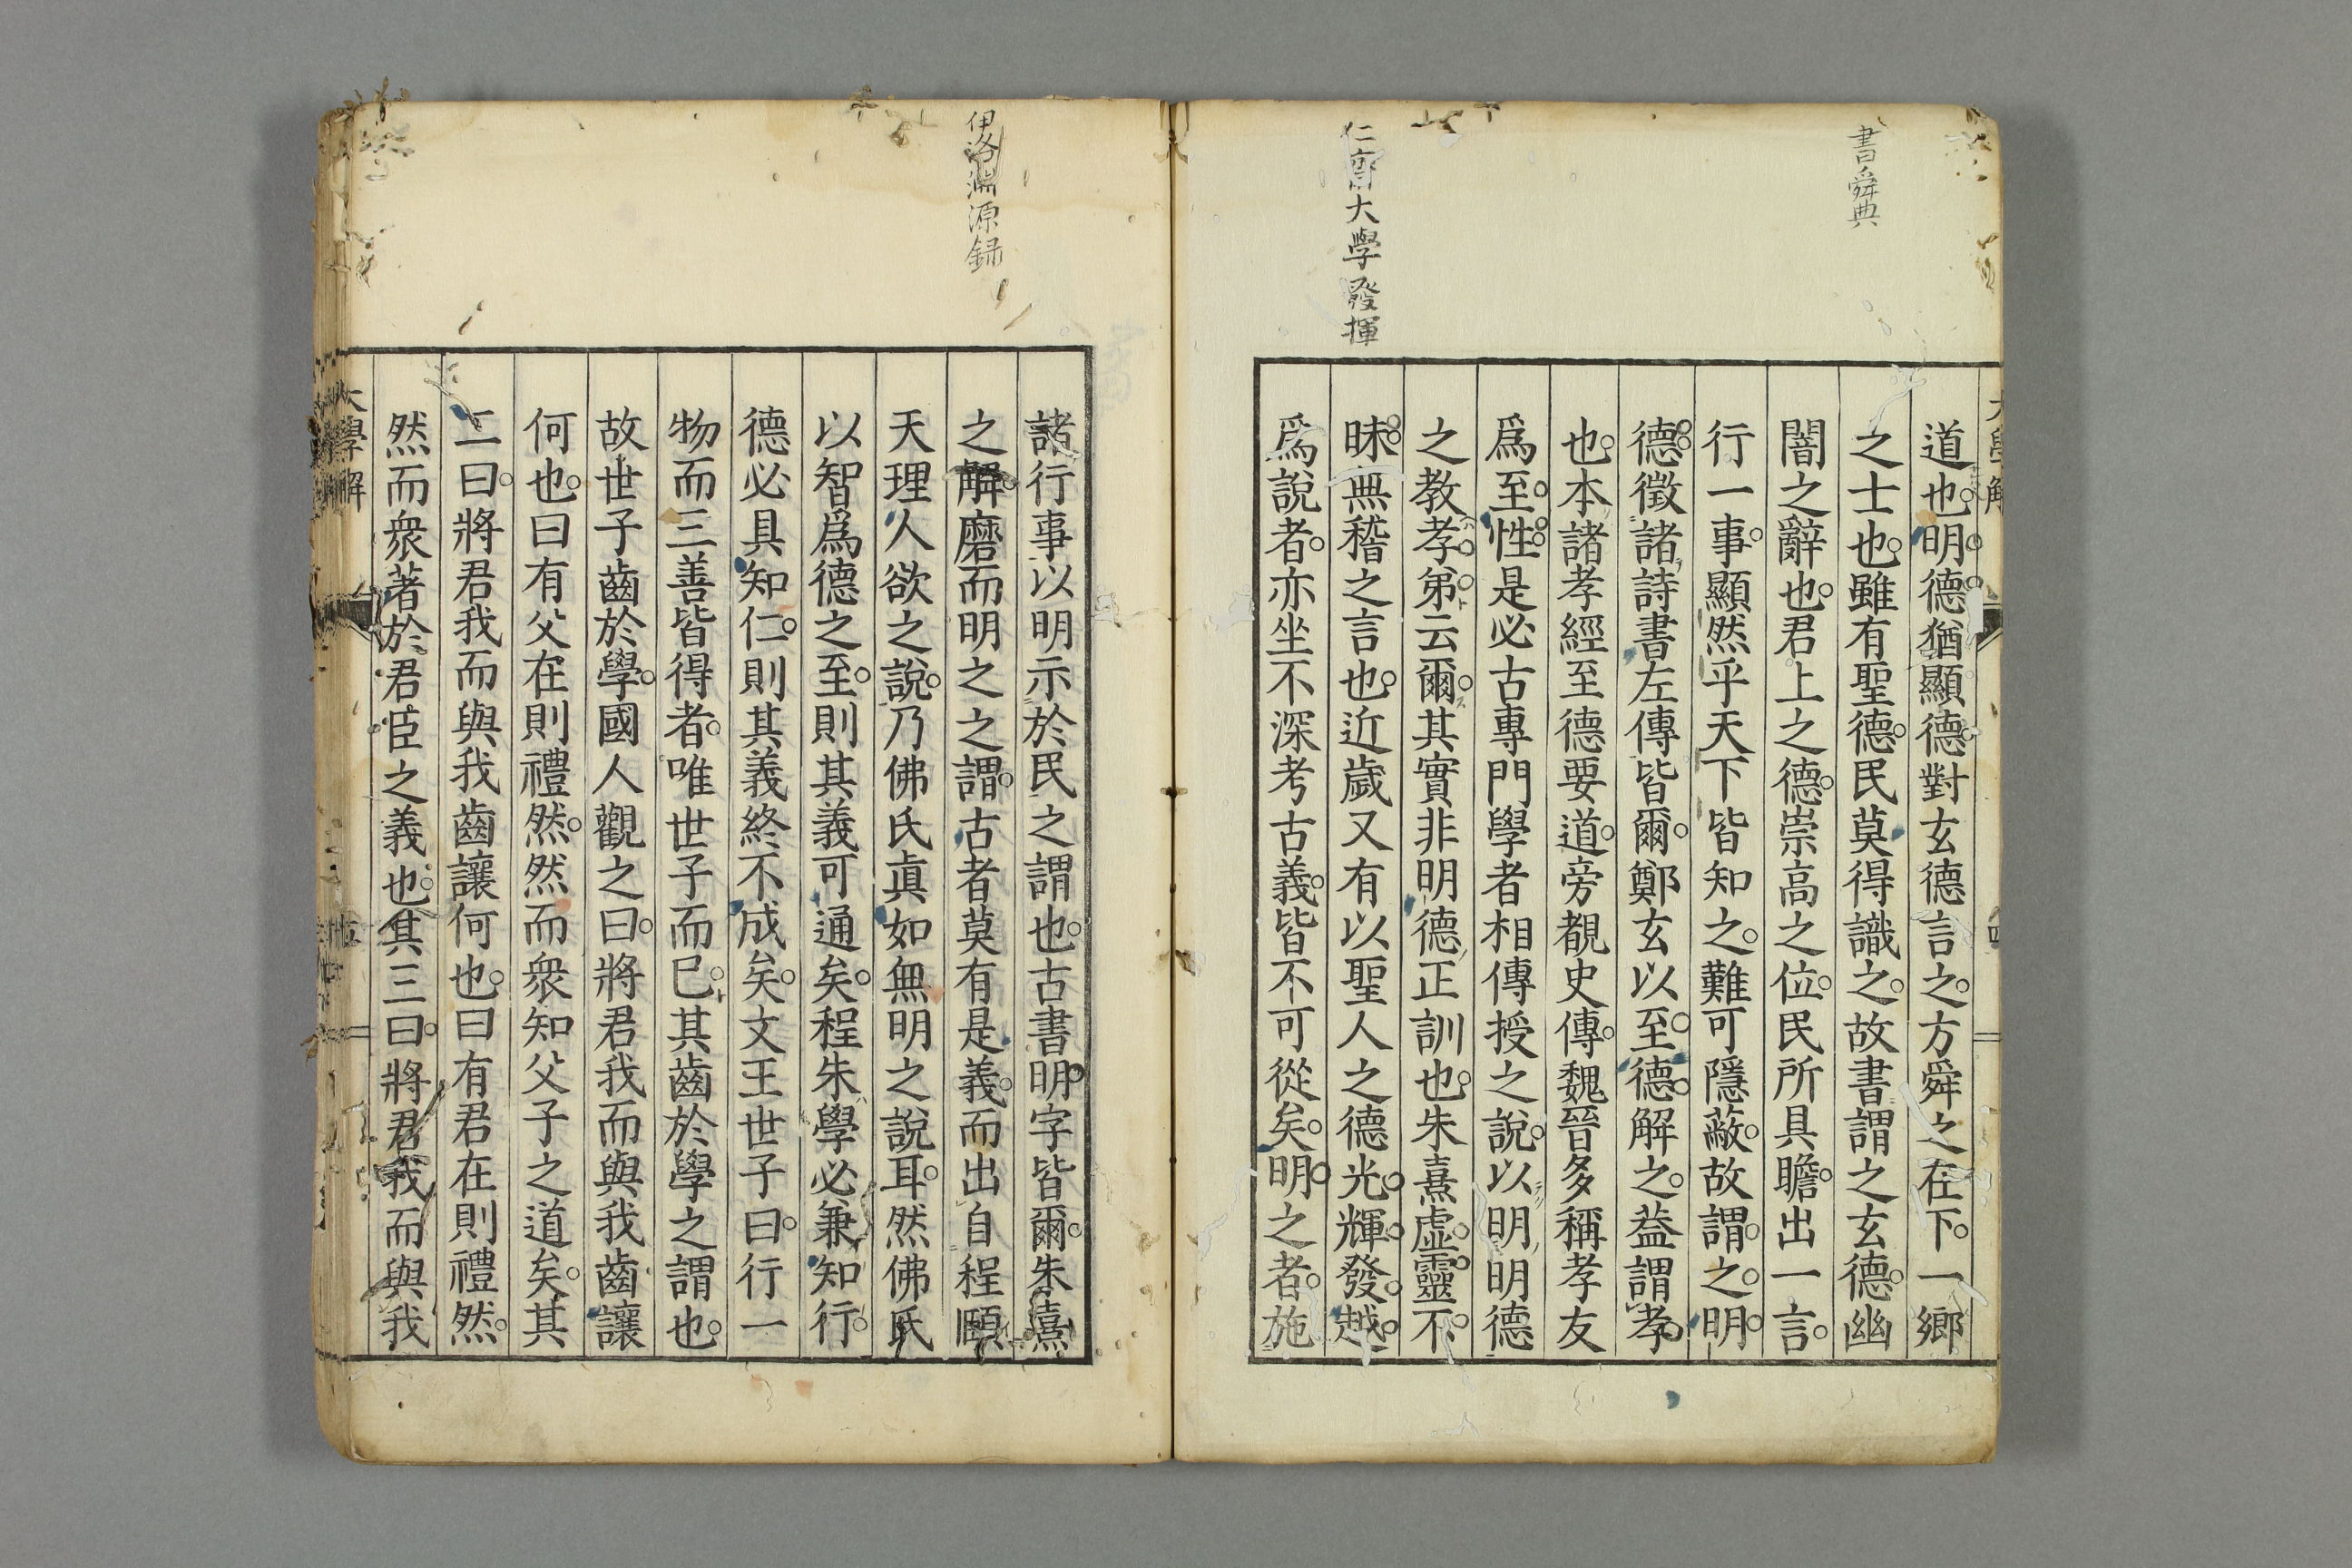 書舜典
仁齋大學發揮
道也明德猶顯德對玄德言之方舜之在下一鄉
之士也雖有聖德民莫得識之故書謂之玄德幽
闇之辭也君上之德崇高之位民所具瞻出一言
行一事顯然乎天下皆知之難可隱蔽故謂之明
德徵諸詩書左傳皆爾鄭玄以至德解之葢謂孝
也本諸孝經至德要道旁覩史傳魏晉多稱孝友
爲至性是必古專門學者相傳授之說以明明德
之教孝弟云爾其實非明德正訓也朱熹虛靈不
昧無稽之言也近歲又有以聖人之德光輝發越
爲說者亦坐不深考古義皆不可從矣明之者施
伊洛淵源録
諸行事以明示於民之謂也古書明字皆爾朱熹
之解磨而明之之謂古者莫有是義而出自程頤
天理人欲之說乃佛氏眞如無明之說耳然佛氏
以智爲德之至則其義可通矣程朱學必兼知行
德必具知仁則其義終不成矣文王世子曰行一
物而三善皆得者唯世子而已其齒於學之謂也
故世子齒於學國人觀之曰將君我而與我齒讓
何也曰有父在則禮然然而衆知父子之道矣其
二曰將君我而與我齒讓何也曰有君在則禮然
然而衆著於君臣之義也其三曰將君我而與我
大學解